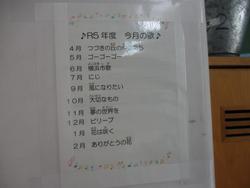 ♪R5年度 今月の歌♪
4月 つづきの丘の
5月 ゴーゴーゴー
6月 横浜市歌
7月 にじ
9月 風になりたい
10月 大切なもの
11月 夢の世界を
12月 ビリーブ
1月 花は咲く
2月 ありがとうの花